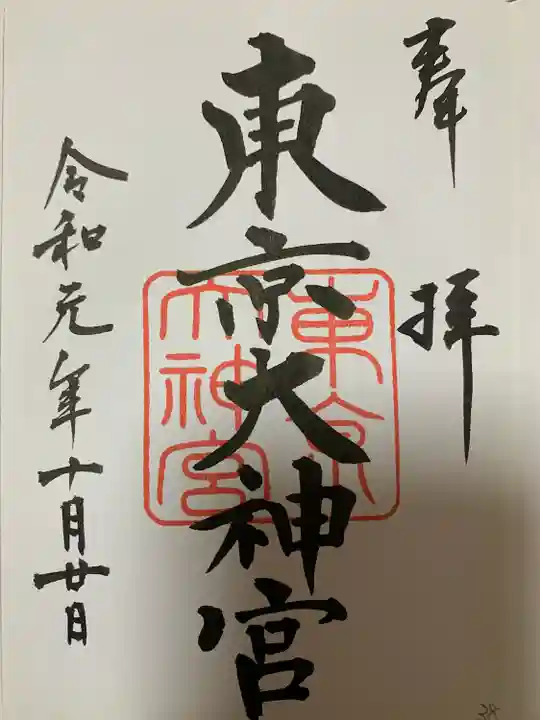 奉拝
東京大神宮
東京
大神宮
令和元年十月廿日
38